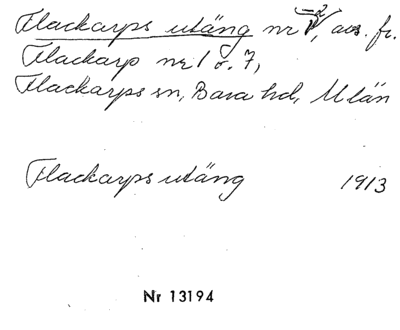 Flackarps utäng nr 2, avs. fr.
Flackarp nr 1 o. 7,
Flackarps sn, Bara hd, M län
Flackarps utäng 1913
Nr 13194